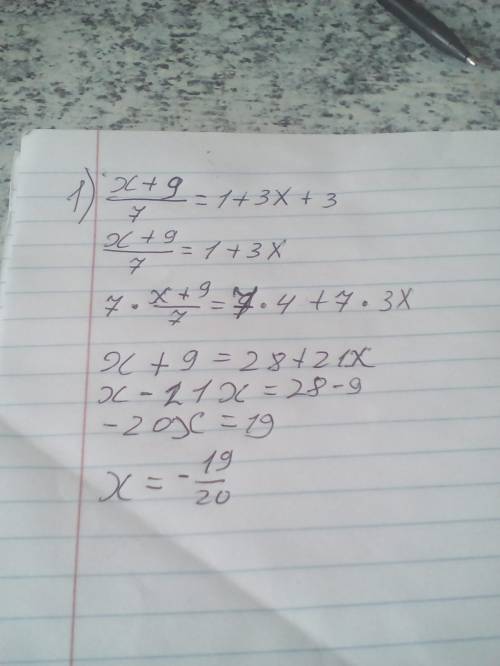 1) x+9/7 = 1+3x+3
x+9/7 = 1+3x
7·x+9/7 = 7·4+7·3x
x+9=28+21x
x-21x=28-9
-20x=19
x=-19/20